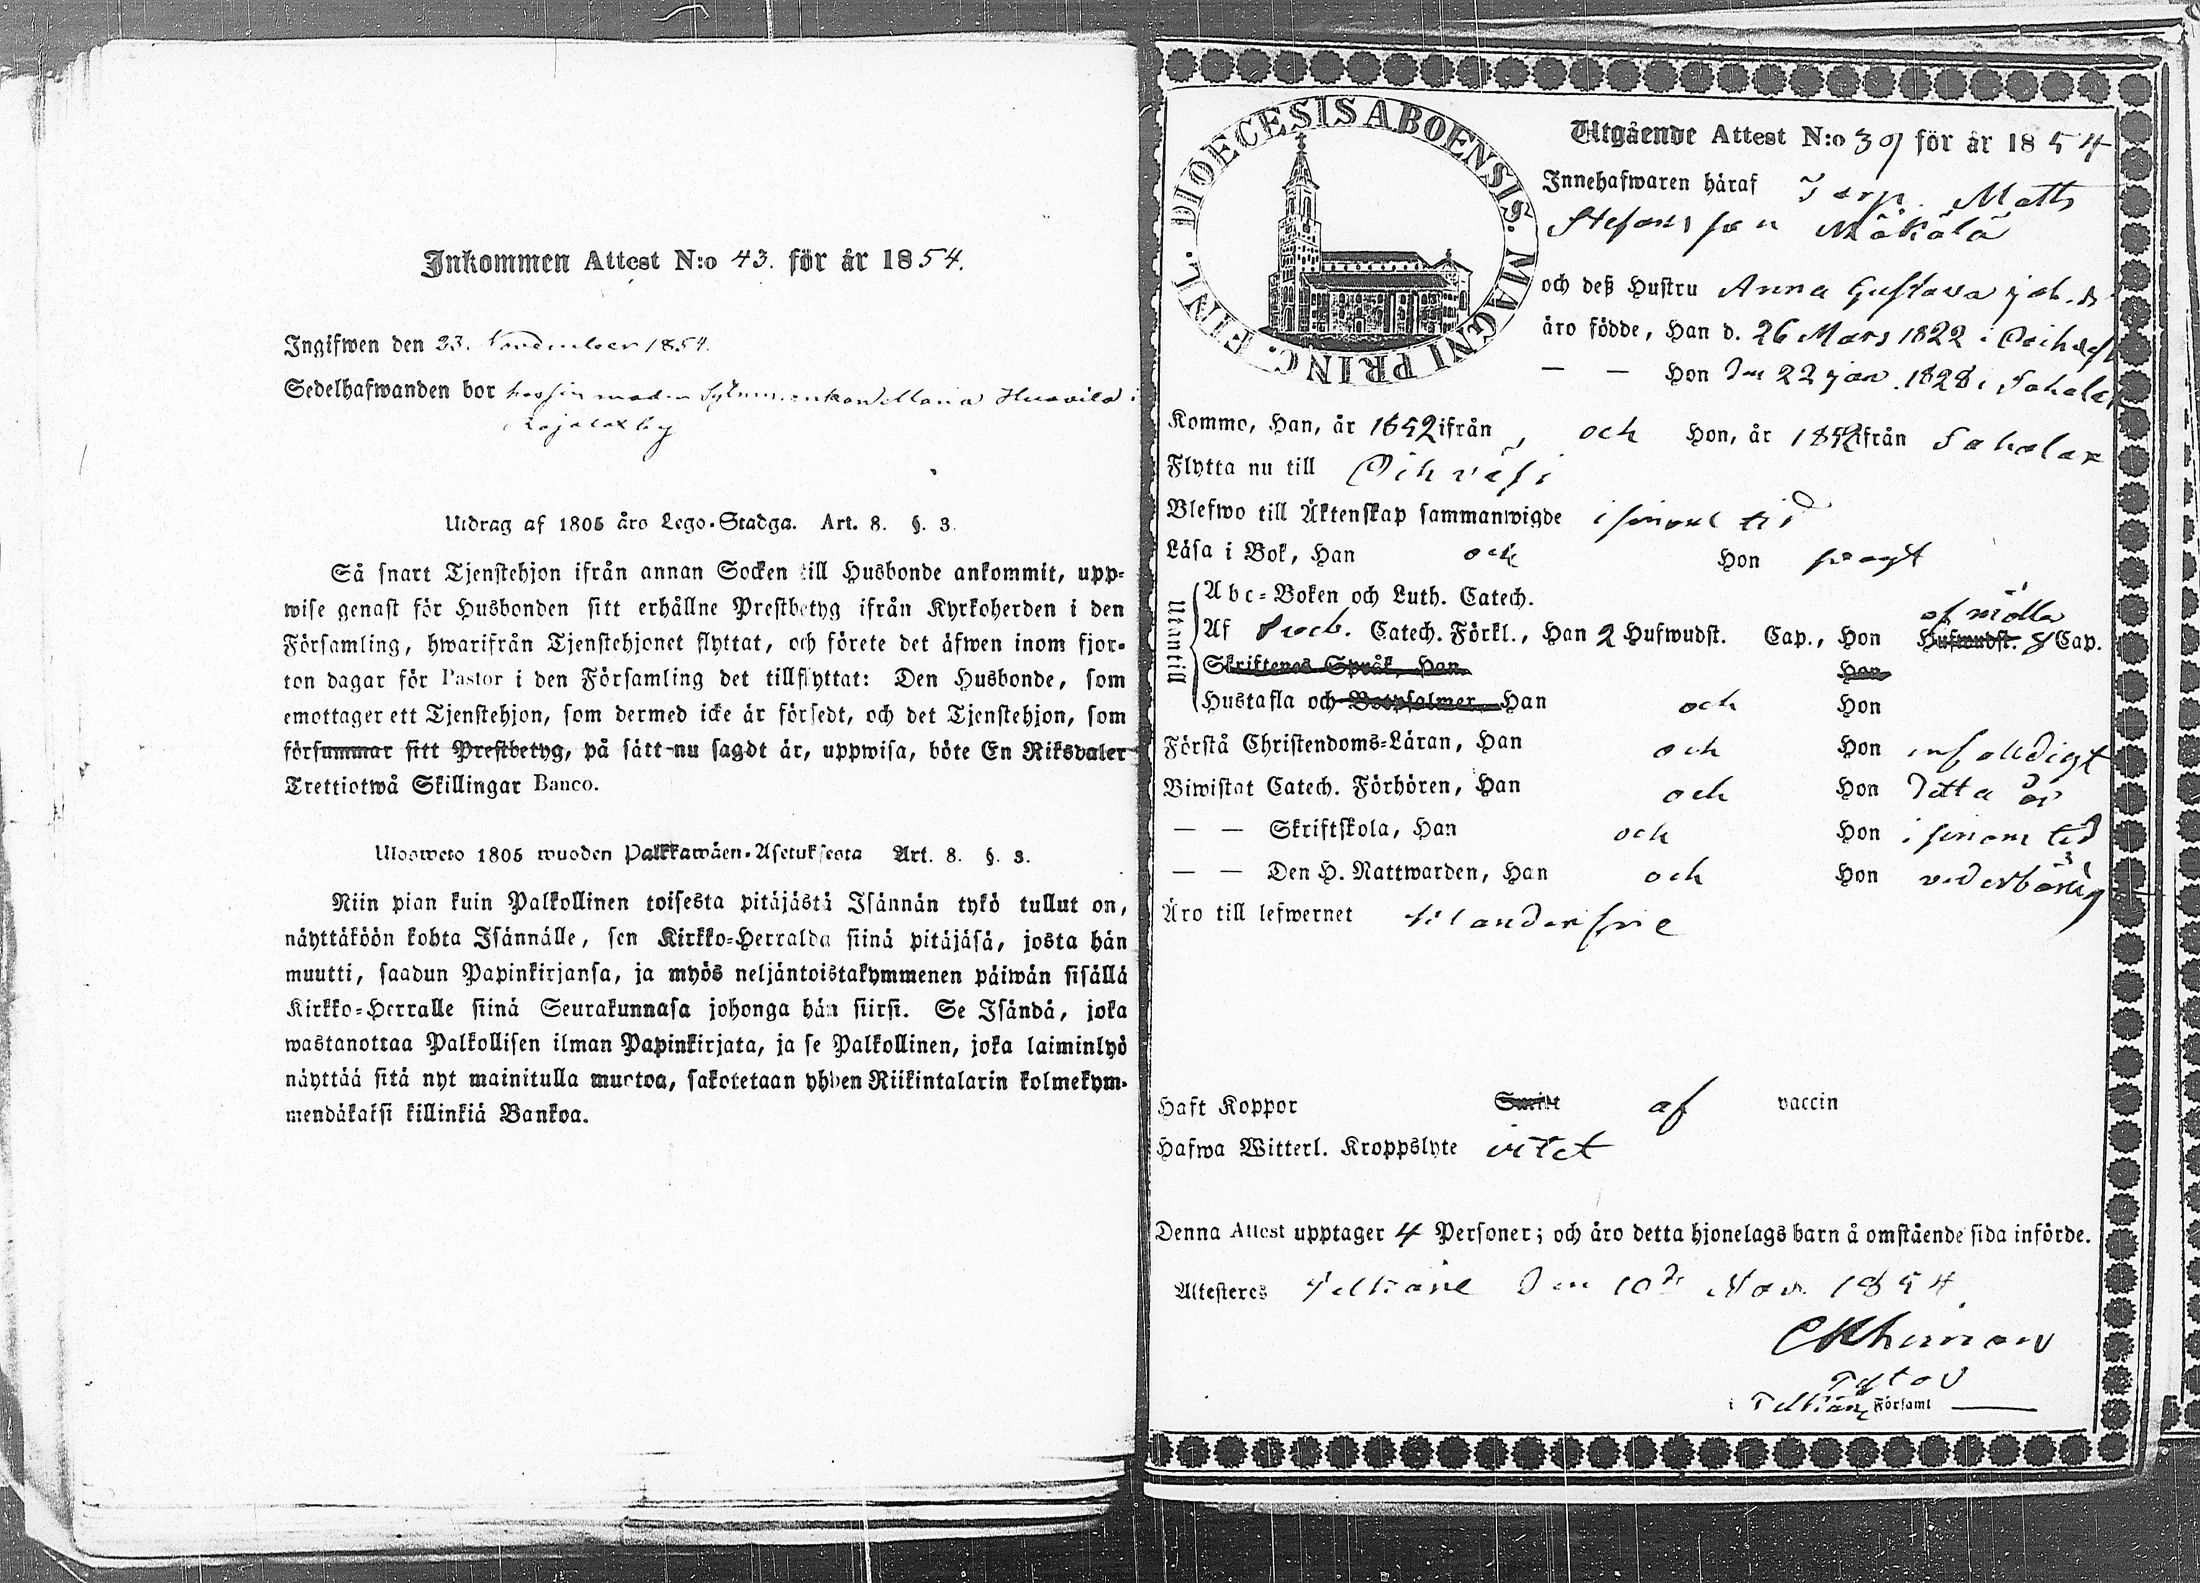 Inkommen Attest N:o 43. för år 1854.
Ingifwen den 23. November 1854.
Sedelhafwanden bor hos sin moder Maria Huovila i
Utdrag af 1805 års Lego-Stadga. Art. 8. §. 3.
Så snart Tjenstehjon ifrån annan Socken till Husbonde ankommit, upp-
wise genast för Husbonden sitt erhållne Prestbetyg ifrån Kyrkoherden i den
Församling, hwarifrån Tjenstehjonet flyttat, och förete det äfwen inom fjor-
ton dagar för Pastor i den Församling det tillflyttat: Den Husbonde, som
emottager ett Tjenstehjon, som dermed icke är försedt, och det Tjenstehjon, som
försummar sitt Prestbetyg, på sätt nu sagdt är, uppwisa, böte En Riksdaler
Trettiotwå Skillingar Banco.
Ulosweto 1805 wuoden Palkkawäen-Asetuksesta Art. 8. §. 3.
Niin pian kuin Palkollinen toisesta pitäjästä Isännän tykö tullut on,
näyttäköön kohta Isännälle, sen Kirkko-Herralda siinä pitäjäsä, josta hän
muutti, saadun Papinkirjansa, ja myös neljäntoistakymmenen päiwän sisällä
Kirkko-Herralle siinä Seurakunnasa johonga hän siirsi. Se Isändä, joka
wastanottaa Palkollisen ilman Papinkirjata, ja se Palkollinen, joka laiminlyö
näyttää sitä nyt mainitulla muotoa, sakotetaan yhden Riikintalarin kolmekym-
mendäkaksi killinkiä Bankoa.
DIOECESIS ABOENSIS. MAGNI PRINC. FINL.
Utgående Attest N:o 39 för år 1854
Innehafwaren häraf Torp. Matts
Stefansson Mäkälä
och deß Hustru Anna Gustava Joh.dr
äro födde, Han d. 26 Mars 1822 i Orihvesi
— — Hon den 22 jan. 1828 i Sahalax
Komme, Han, år 1852 ifrån , och Hon, år 1852 ifrån Sahalax
Flytta nu till Orihvesi
Blefwo till Äktenskap sammanwigde i sinom tid
Läsa i Bok, Han och Hon swagt
Utantill
Abc-Boken och Luth. Catech.
af nödla
Af Catech. Förkl., Han 2 Hufwudst. Cap., Hon Hufwudst. 8 Cap.
Skriftenes Språk, Han Hon
Hustafla och Botpsalmer, Han och Hon
Förstå Christendoms-Läran, Han och Hon enfalldigt
Biwistat Catech. Förhören, Han och Hon detta år
— — Skriftskola, Han och Hon i sinom tid
— — Den H. Nattwarden, Han och Hon vederbörlig
Äro till lefwernet klanderfrie
Haft Koppor Smitt af vaccin
Hafwa Witterl. Kroppslyte vitet
Denna Attest upptager 4 Personer; och äro detta hjonelags barn å omstående sida införde.
Attesteres Pelkäne den 10de Nov. 1854
i Pelkäne Församl